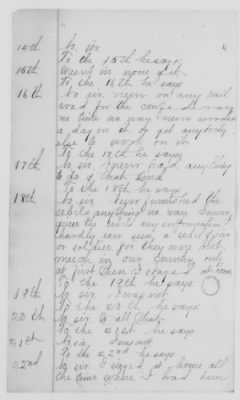 15th No sir
To the 15th he says
15th Wasnt in none sir.
To the 16th he says
16th No sir, never on any rail
road for the confederacy
no time no way never worked
a day on it, or got anybody
else to work on it
To the 17th he says
17th No sir I never had anything
to do of that kind.
To the 18th he says
18th No sir I never furnished the
rebels anything no way I never
gave the rebels any information I
hardly ever seen a rebel
or soldier for they were not
much in our country only
at first then I stayed at home
To the 19th he says
19th No sir. I was not
To the 20th he says
20th No sir to all that.
To the 21st he says
21st No sir, I was not
To the 22nd he says
22nd No sir. I stayed at home all
the time where I had been